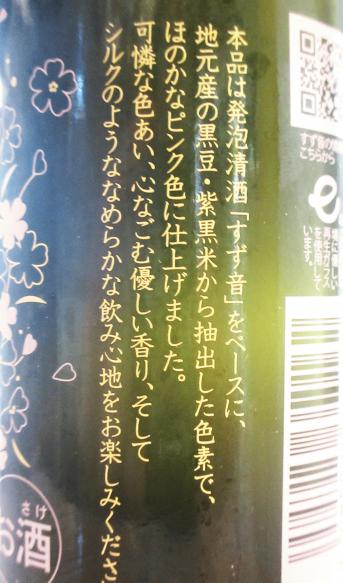 本品は発泡清酒「すず音」をベースに、
地元産の黒豆・紫黒米から抽出した色素で、
ほのかなピンク色に仕上げました。
可憐な色あい、心なごむ優しい香り、そして
シルクのようななめらかな飲み心地をお楽しみくださ
すず音の
こちらから
再生ガラス
を使用して
います。
さけ
お酒